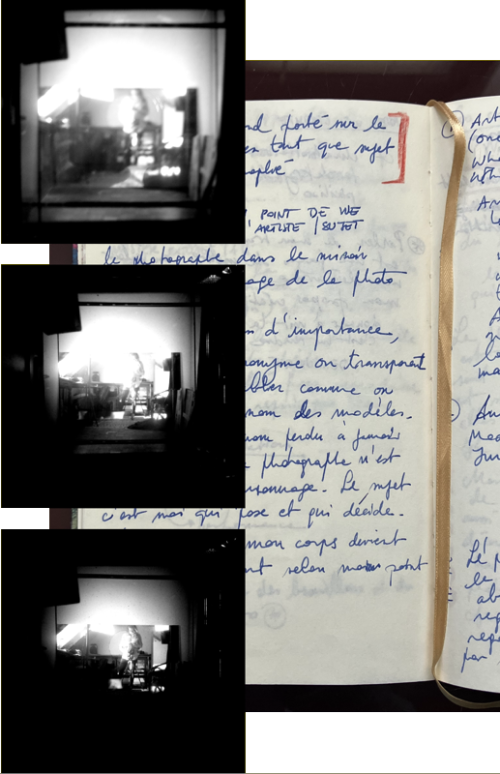 nd porté sur le
en tant que sujet
aphié
POINT DE VUE
ARTISTE / SUJET
le photographe dans le miroir
age de la photo
n d'importance,
nonyme ou transparent
blier comme on
nom des modèles.
nom perdu à jamais
photographe n'est
sonnage. Le sujet
c'est moi qui pose et qui décide.
mon corps devient
nt selon mon point
Art
(one
Wh
Ar
A
la
ma
Au
Mod
Jun
Le p
le
ab
rep
repr
par